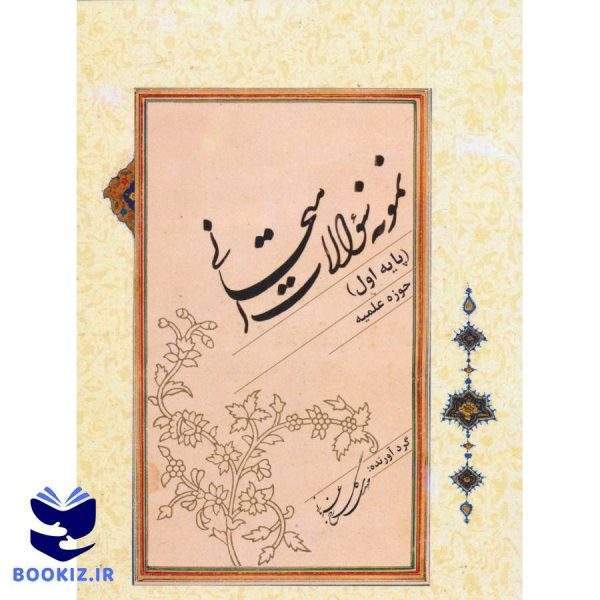 نمونه سئوالات امتحانی
(پایه اول)
حوزه علمیه
گردآورنده:
BOOKIZ.IR